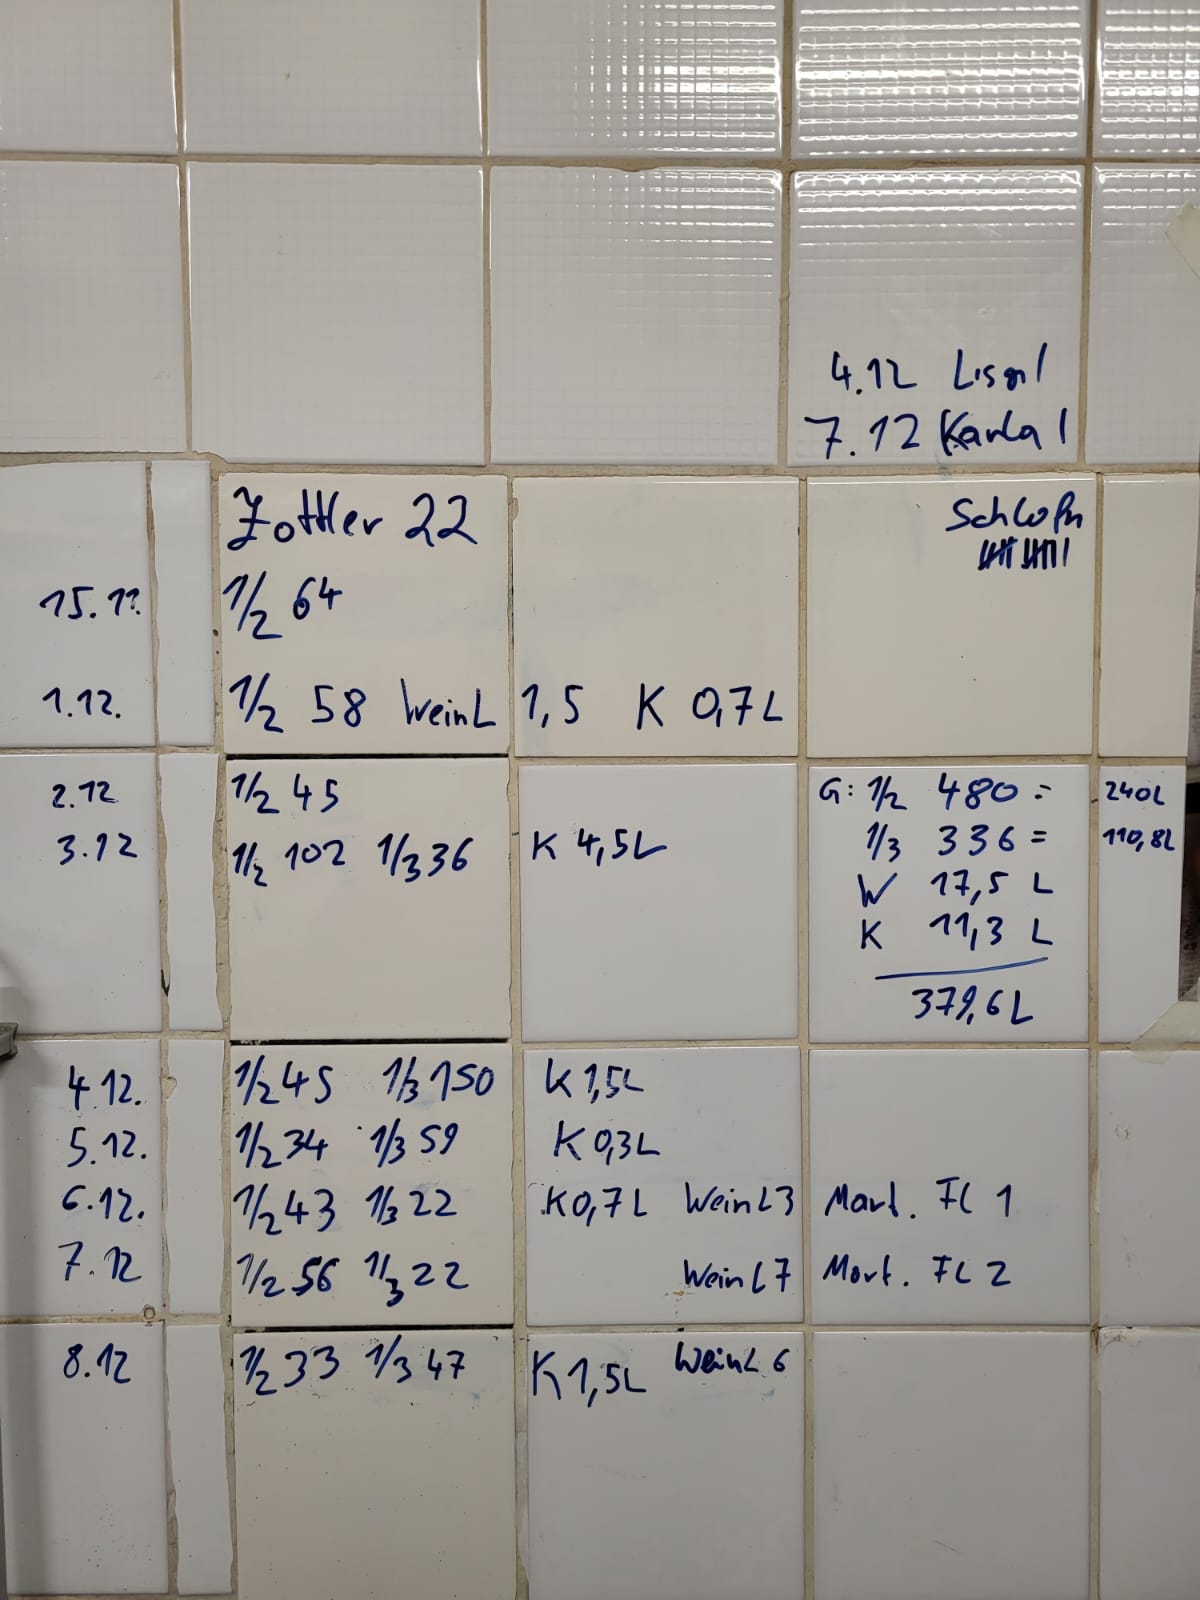 4.12
7.12 Karla 1
Zottler 22
15.11. 1/2 64
1.12. 1/2 58 Wein L 1,5 K 0,7 L
2.12 1/2 45
3.12 1/2 102 1/3 36 K 4,5L
G: 1/2 480 = 240L
1/3 336 = 110,8L
W 17,5 L
K 11,3 L
379,6 L
4.12. 1/2 45 1/3 150 K 1,5L
5.12. 1/2 34 1/3 59 K 0,3L
6.12. 1/2 43 1/3 22 K 0,7L Wein L 3 Mart. FL 1
7.12 1/2 56 1/3 22 Wein L 7 Mart. FL 2
8.12 1/2 33 1/3 47 K 1,5L Wein L 6